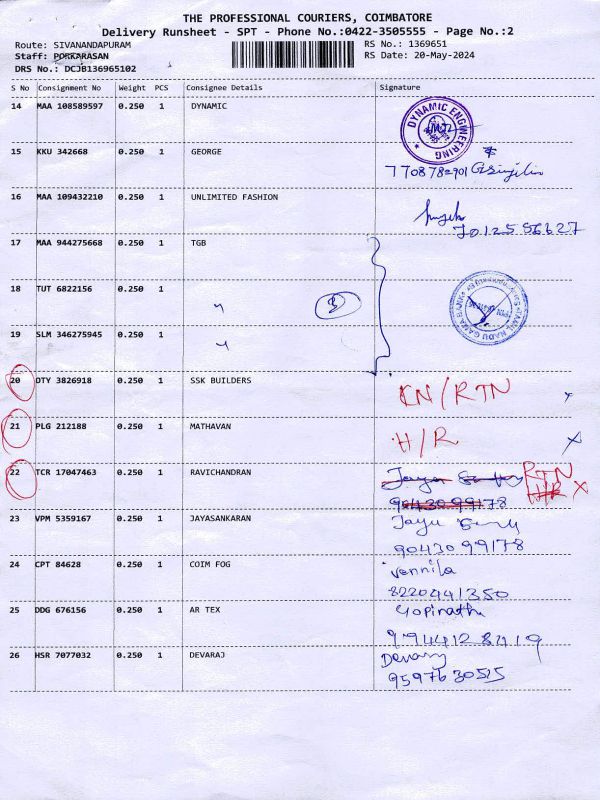 THE PROFESSIONAL COURIERS, COIMBATORE
Delivery Runsheet - SPT - Phone No.:0422-3505555 - Page No.:2
Route: SIVANANDAPURAM
RS No.: 1369651
Staff: PORKARASAN
RS Date: 20-May-2024
DRS No.: DCJB136965102
S No Consignment No Weight PCS Consignee Details Signature
14 MAA 108589597 0.250 1 DYNAMIC
DYNAMIC ENGINEERING
15 KKU 342668 0.250 1 GEORGE
16 MAA 109432210 0.250 1 UNLIMITED FASHION
17 MAA 944275668 0.250 1 TGB
18 TUT 6822156 0.250 1 " 3
TAMIL NADU GRAMA BANK
19 SLM 346275945 0.250 1 "
20 DTY 3826918 0.250 1 SSK BUILDERS
KN/RTN
21 PLG 212188 0.250 1 MATHAVAN
H/R X
22 TCR 17047463 0.250 1 RAVICHANDRAN
RTN
H/R X
9043099178
23 VPM 5359167 0.250 1 JAYASANKARAN
9043099178
24 CPT 84628 0.250 1 COIM FOG
Vennila
8220441350
25 DDG 676156 0.250 1 AR TEX
Gopinath
9944128419
26 HSR 7077032 0.250 1 DEVARAJ
9597630515